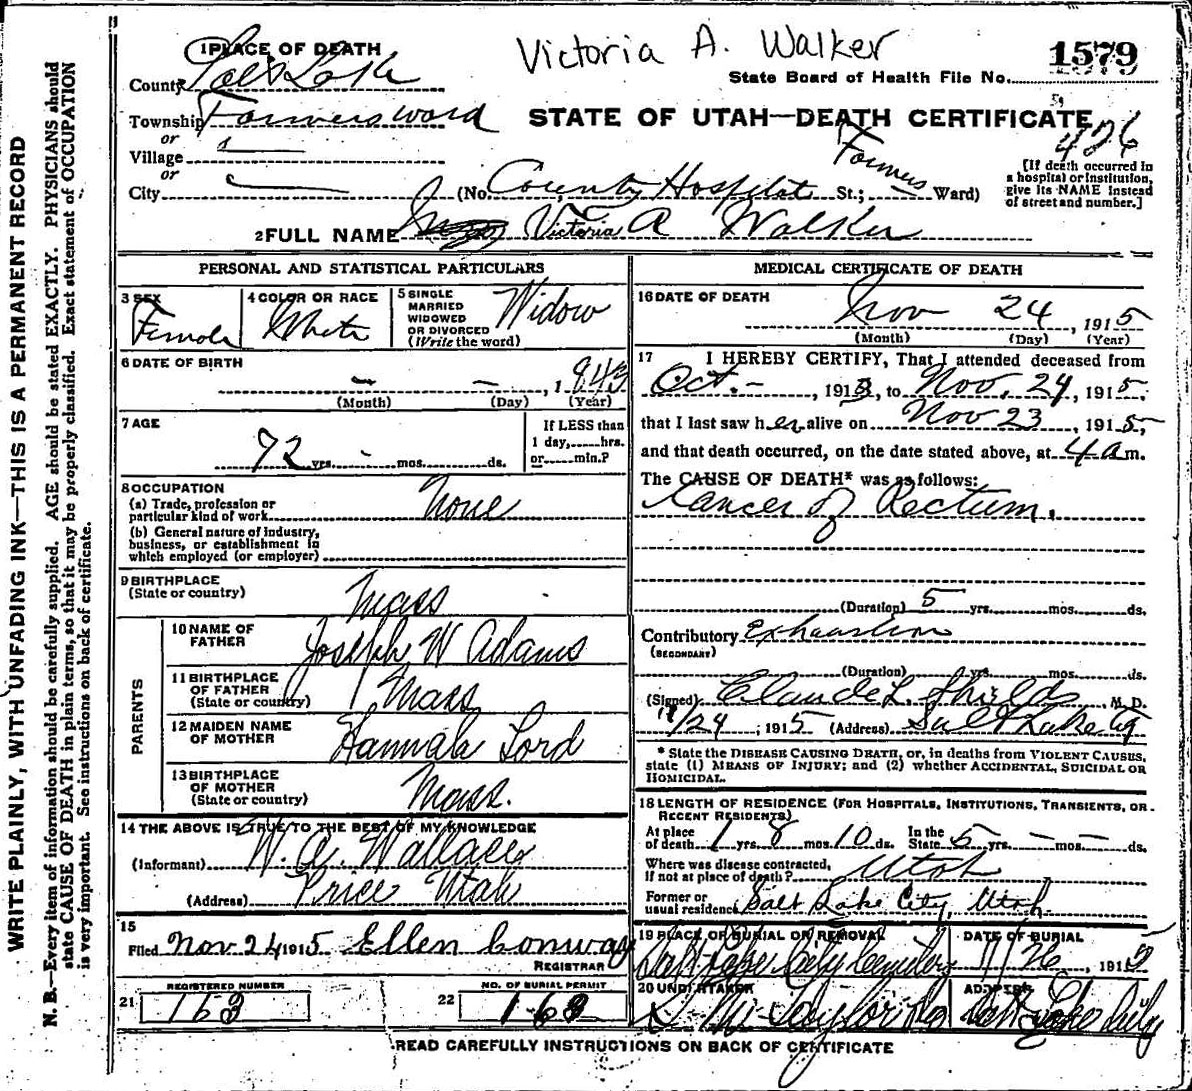 Victoria A. Walker
1579
State Board of Health File No.
STATE OF UTAH—DEATH CERTIFICATE
426
1 PLACE OF DEATH
County Salt Lake
Township Farmers ward
or
Village
or
City (No. County Hospital St.; Farmers Ward)
[If death occurred in
a hospital or institution,
give its NAME instead
of street and number.]
2 FULL NAME Victoria A Walker
PERSONAL AND STATISTICAL PARTICULARS
3 SEX
Female
4 COLOR OR RACE
White
5 SINGLE
MARRIED
WIDOWED
OR DIVORCED
(Write the word)
Widow
6 DATE OF BIRTH
— — , 1843
(Month) (Day) (Year)
7 AGE
72 yrs. mos. ds.
If LESS than
1 day, hrs.
or min.?
8 OCCUPATION
(a) Trade, profession or
particular kind of work None
(b) General nature of industry,
business, or establishment in
which employed (or employer)
9 BIRTHPLACE
(State or country)
Mass
PARENTS
10 NAME OF
FATHER
Joseph W Adams
11 BIRTHPLACE
OF FATHER
(State or country)
Mass
12 MAIDEN NAME
OF MOTHER
Hannah Lord
13 BIRTHPLACE
OF MOTHER
(State or country)
Mass.
14 THE ABOVE IS TRUE TO THE BEST OF MY KNOWLEDGE
(Informant) W. A. Wallace
(Address) Price Utah
15
Filed Nov 24 1915 Ellen Conway
REGISTRAR
21
REGISTERED NUMBER
163
22
NO. OF BURIAL PERMIT
163
MEDICAL CERTIFICATE OF DEATH
16 DATE OF DEATH
Nov 24, 1915
(Month) (Day) (Year)
17 I HEREBY CERTIFY, That I attended deceased from
Oct. - , 1913, to Nov. 24, 1915,
that I last saw her alive on Nov 23, 1915,
and that death occurred, on the date stated above, at 4 a m.
The CAUSE OF DEATH* was as follows:
Cancer of Rectum.
(Duration) 5 yrs. mos. ds.
Contributory Exhaustion
(SECONDARY)
(Duration) yrs. mos. ds.
(Signed) Claude L. Shields M. D.
11/24, 1915 (Address) Salt Lake City
* State the DISEASE CAUSING DEATH, or, in deaths from VIOLENT CAUSES,
state (1) MEANS OF INJURY; and (2) whether ACCIDENTAL, SUICIDAL OR
HOMICIDAL.
18 LENGTH OF RESIDENCE (FOR HOSPITALS, INSTITUTIONS, TRANSIENTS, OR
RECENT RESIDENTS)
At place
of death 1 8 mos. 10 ds. In the
State 5 yrs. — mos. — ds.
Where was disease contracted,
if not at place of death? Utah
Former or
usual residence Salt Lake City, Utah
19 PLACE OF BURIAL OR REMOVAL
Salt Lake City Cemetery
DATE OF BURIAL
11/26, 1915
20 UNDERTAKER
Taylor
ADDRESS
Salt Lake City
READ CAREFULLY INSTRUCTIONS ON BACK OF CERTIFICATE
WRITE PLAINLY, WITH UNFADING INK—THIS IS A PERMANENT RECORD
N. B.—Every item of information should be carefully supplied. AGE should be stated EXACTLY. PHYSICIANS should
state CAUSE OF DEATH in plain terms, so that it may be properly classified. Exact statement of OCCUPATION
is very important. See instructions on back of certificate.